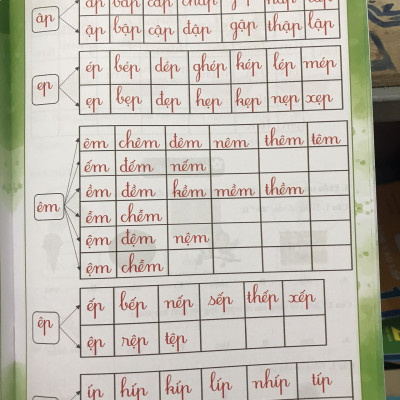 âp
ập bập cập đập gập thập lập
ep
ép bép dép ghép kép lép mép
ẹp bẹp đẹp hẹp kẹp nẹp xẹp
êm
êm chêm đêm nêm thêm têm
ếm đếm nếm
ềm đềm kềm mềm thềm
ễm chễm
ệm đệm nệm
ệm chễm
êp
ếp bếp nếp sếp thếp xếp
ệp rệp tệp
íp híp kíp líp nhíp típ